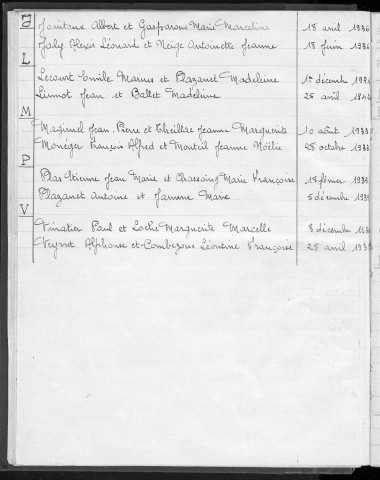 J Jaintoux Albert et Gasparoux Marie Marceline 18 avril 1936
Joly Alexis Léonard et Neige Antoinette Jeanne 18 juin 193
L Lecourt Emile Marius et Plazanet Madeleine 1o décembre 193
Limnot Jean et Ballet Madeleine 25 avril
M Magimel Jean Pierre et Theillac Jeanne Marguerite 1o août 1933
Monéger François Alfred et Monteil Jeanne Noëlie 28 octobre 193
P Plas Etienne Jean Marie et Chassaing Marie Françoise 18 février 193
Plazanet Antoine et Marie 5 décembre 193
V Vinatier Paul et Loche Marguerite Marcelle 8 décembre 193
Veyret Alphonse et Combezou Léontine Françoise 25 avril 193